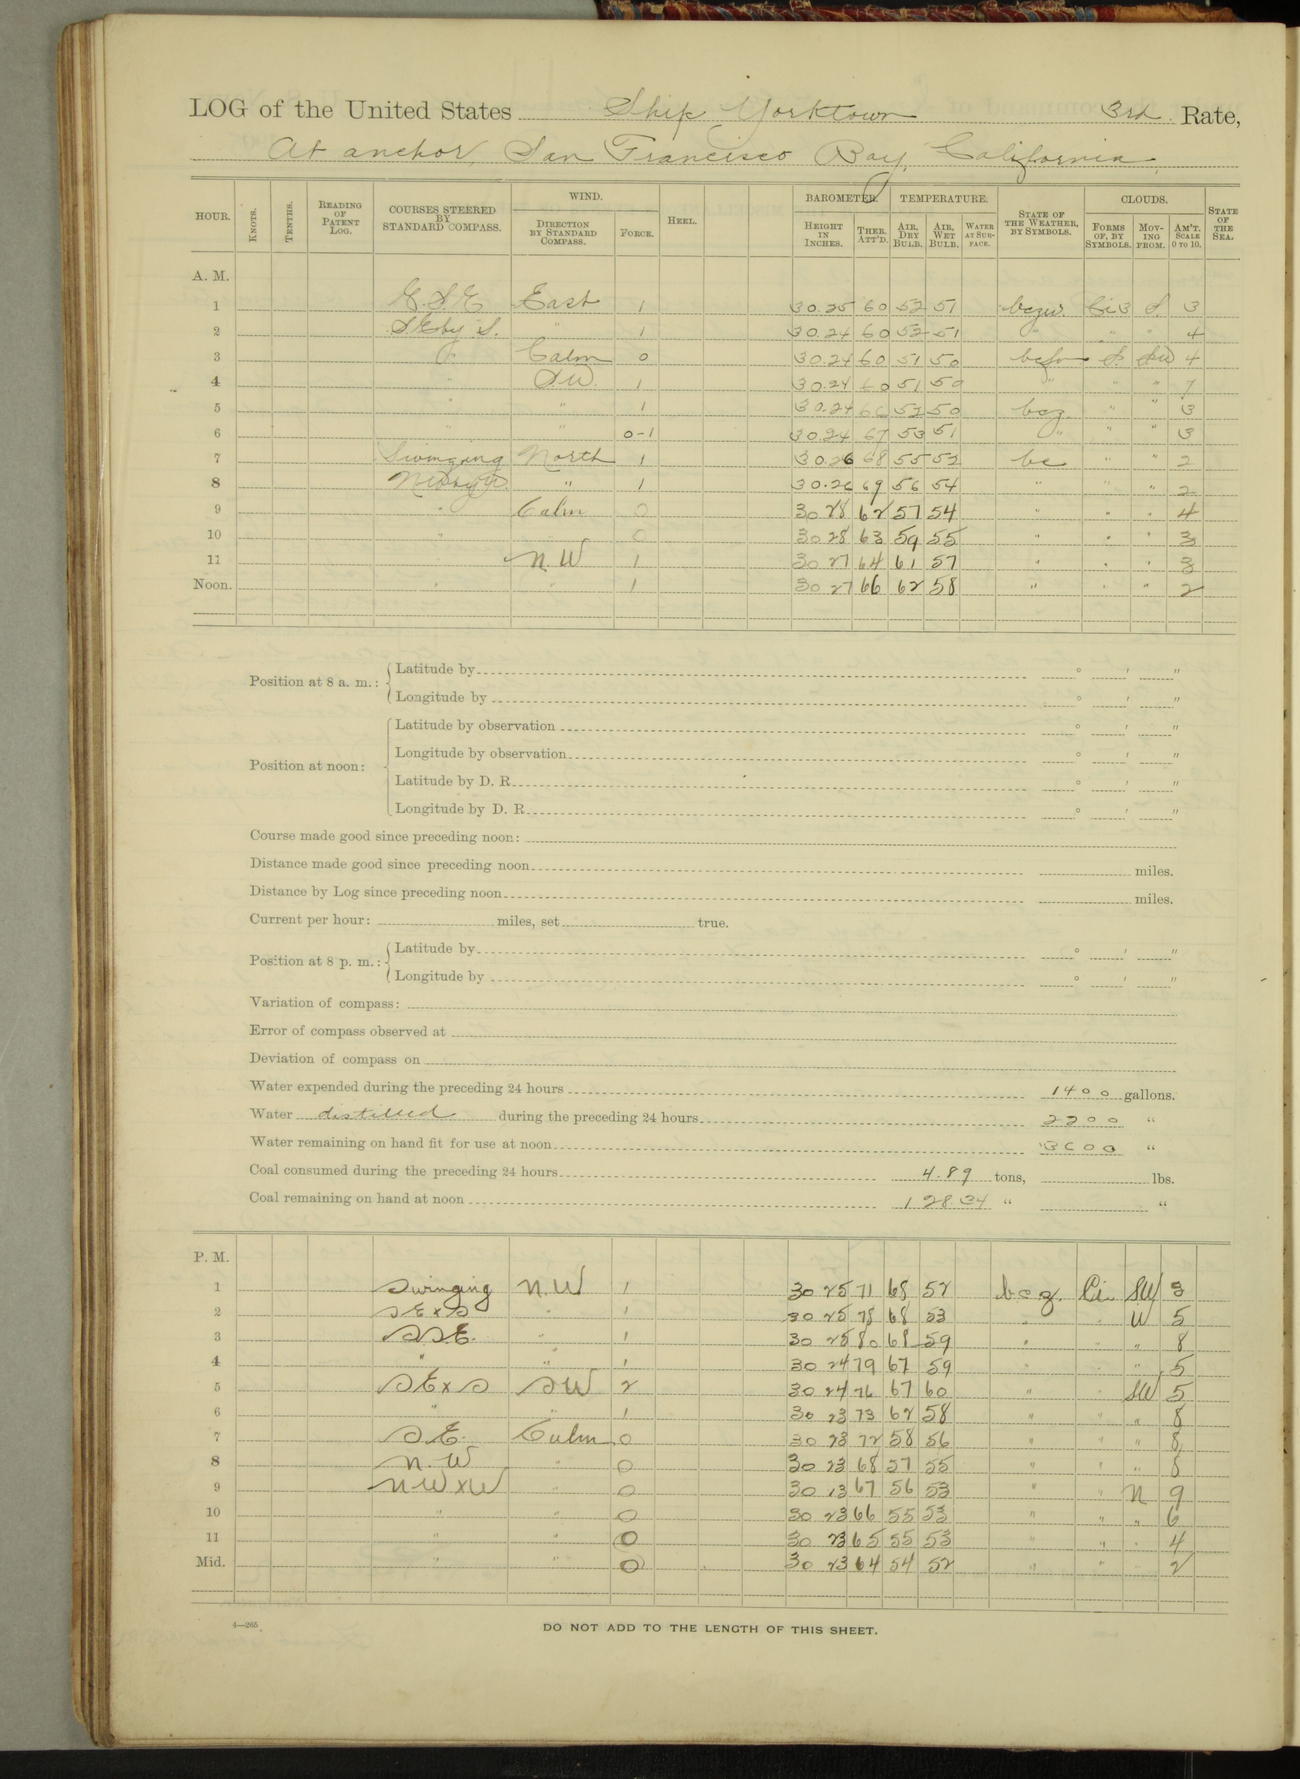 LOG of the United States Ship Yorktown 3rd Rate,
At anchor, San Francisco Bay, California,
HOUR. KNOTS. TENTHS. READING OF PATENT LOG. COURSES STEERED BY STANDARD COMPASS. WIND. DIRECTION BY STANDARD COMPASS. FORCE. HEEL. BAROMETER. HEIGHT IN INCHES. THER. ATT'D. TEMPERATURE. AIR, DRY BULB. AIR, WET BULB. WATER AT SURFACE. STATE OF THE WEATHER, BY SYMBOLS. CLOUDS. FORMS OF, BY SYMBOLS. MOVING FROM. AM'T. SCALE 0 TO 10. STATE OF THE SEA.
A. M.
1 E.S.E East 1 30.25 60 52 51 S 3
2 SE by S. " 1 30.24 60 52 51 " " " 4
3 " Calm 0 30.24 60 51 50 S. SW 4
4 " SW. 1 30.24 60 51 50 " " " 7
5 " " 1 30.24 66 52 50 bcz " " 3
6 " " 0-1 30.24 67 53 51 " " " 3
7 Swinging North 1 30.26 68 55 52 bc " " 2
8 NW by W. " 1 30.26 69 56 54 " " " 2
9 " Calm 0 30 28 62 57 54 " " " 4
10 " 0 30 28 63 59 55 " " " 3
11 N.W 1 30 27 64 61 57 " " " 3
Noon. " " 1 30 27 66 62 58 " " " 2
Position at 8 a. m.: Latitude by ° ' "
Longitude by ° ' "
Position at noon: Latitude by observation ° ' "
Longitude by observation ° ' "
Latitude by D. R. ° ' "
Longitude by D. R. ° ' "
Course made good since preceding noon:
Distance made good since preceding noon miles.
Distance by Log since preceding noon miles.
Current per hour: miles, set true.
Position at 8 p. m.: Latitude by ° ' "
Longitude by ° ' "
Variation of compass:
Error of compass observed at
Deviation of compass on
Water expended during the preceding 24 hours 1400 gallons.
Water distilled during the preceding 24 hours 2200 "
Water remaining on hand fit for use at noon "
Coal consumed during the preceding 24 hours 4.89 tons, lbs.
Coal remaining on hand at noon 128 34 " "
P. M.
1 Swinging N.W 1 30 25 71 68 52 bcz. Ci. SW 3
2 SExS " 1 30 25 78 68 53 " " W 5
3 SSE. " 1 30 25 80 68 59 " " " 8
4 " " 1 30 24 79 67 59 " " " 5
5 SExS SW 2 30 24 76 67 60 " " SW 5
6 " " 1 30 23 73 62 58 " " " 8
7 SE. Calm 0 30 23 72 58 56 " " " 8
8 N.W " 0 30 23 68 57 55 " " " 8
9 NWxW " 0 30 23 67 56 53 " " N 9
10 " " 0 30 23 66 55 53 " " " 6
11 " " 0 30 23 65 55 53 " " " 4
Mid. " " 0 30 23 64 54 52 " " " 2
4—265
DO NOT ADD TO THE LENGTH OF THIS SHEET.